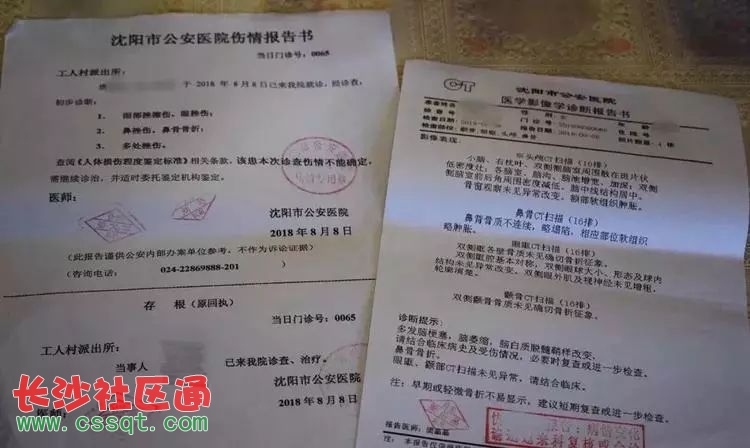 沈阳市公安医院伤情报告书
当日门诊号：0065
工人村派出所：
于 2018 年 8 月 8 日已来我院就诊，经诊查：
初步诊断：
1、 面部挫擦伤，眼挫伤；
2、 鼻挫伤，鼻骨骨折；
3、 多处挫伤。
查阅《人体损伤程度鉴定标准》相关条款，该患本次诊查伤情不能确定，
需继续诊治，并适时委托鉴定机构鉴定。
医师：
沈阳市公安医院
2018 年 8 月 8 日
（此报告谨供公安内部办案单位参考，不作为诉讼证据）
（咨询电话： 024-22869888-201 ）
存 根（原回执）
当日门诊号：0065
工人村派出所：
当事人
已来我院诊查、治疗。
医师：
沈阳市公安医院
2018 年 8 月 8 日
CT
沈阳市公安医院
医学影像学诊断报告书
影像表现：
头颅CT扫描（16排）
鼻骨CT扫描（16排）
鼻骨骨质不连续，略塌陷，相应部位软组织
略肿胀。
眼眶CT扫描（16排）
双侧眶各壁骨质未见确切骨折征象。
双侧眶腔基本对称，双侧眼球大小、形态及球内
结构未见异常改变。双侧眼外肌及视神经未见增粗，
轮廓清楚。
颧骨CT扫描（16排）
双侧颧骨骨质未见确切骨折征象。
诊断提示：
多发脑梗塞，脑萎缩，脑白质脱髓鞘样改变。
请结合临床病史及受伤情况，必要时复查或进一步检查。
鼻骨骨折。
眼眶、颧部CT扫描未见异常，请结合临床。
注：早期或轻微骨折不易显示，建议短期复查或进一步检查。
报告医师：
长沙社区通
www.cssqt.com